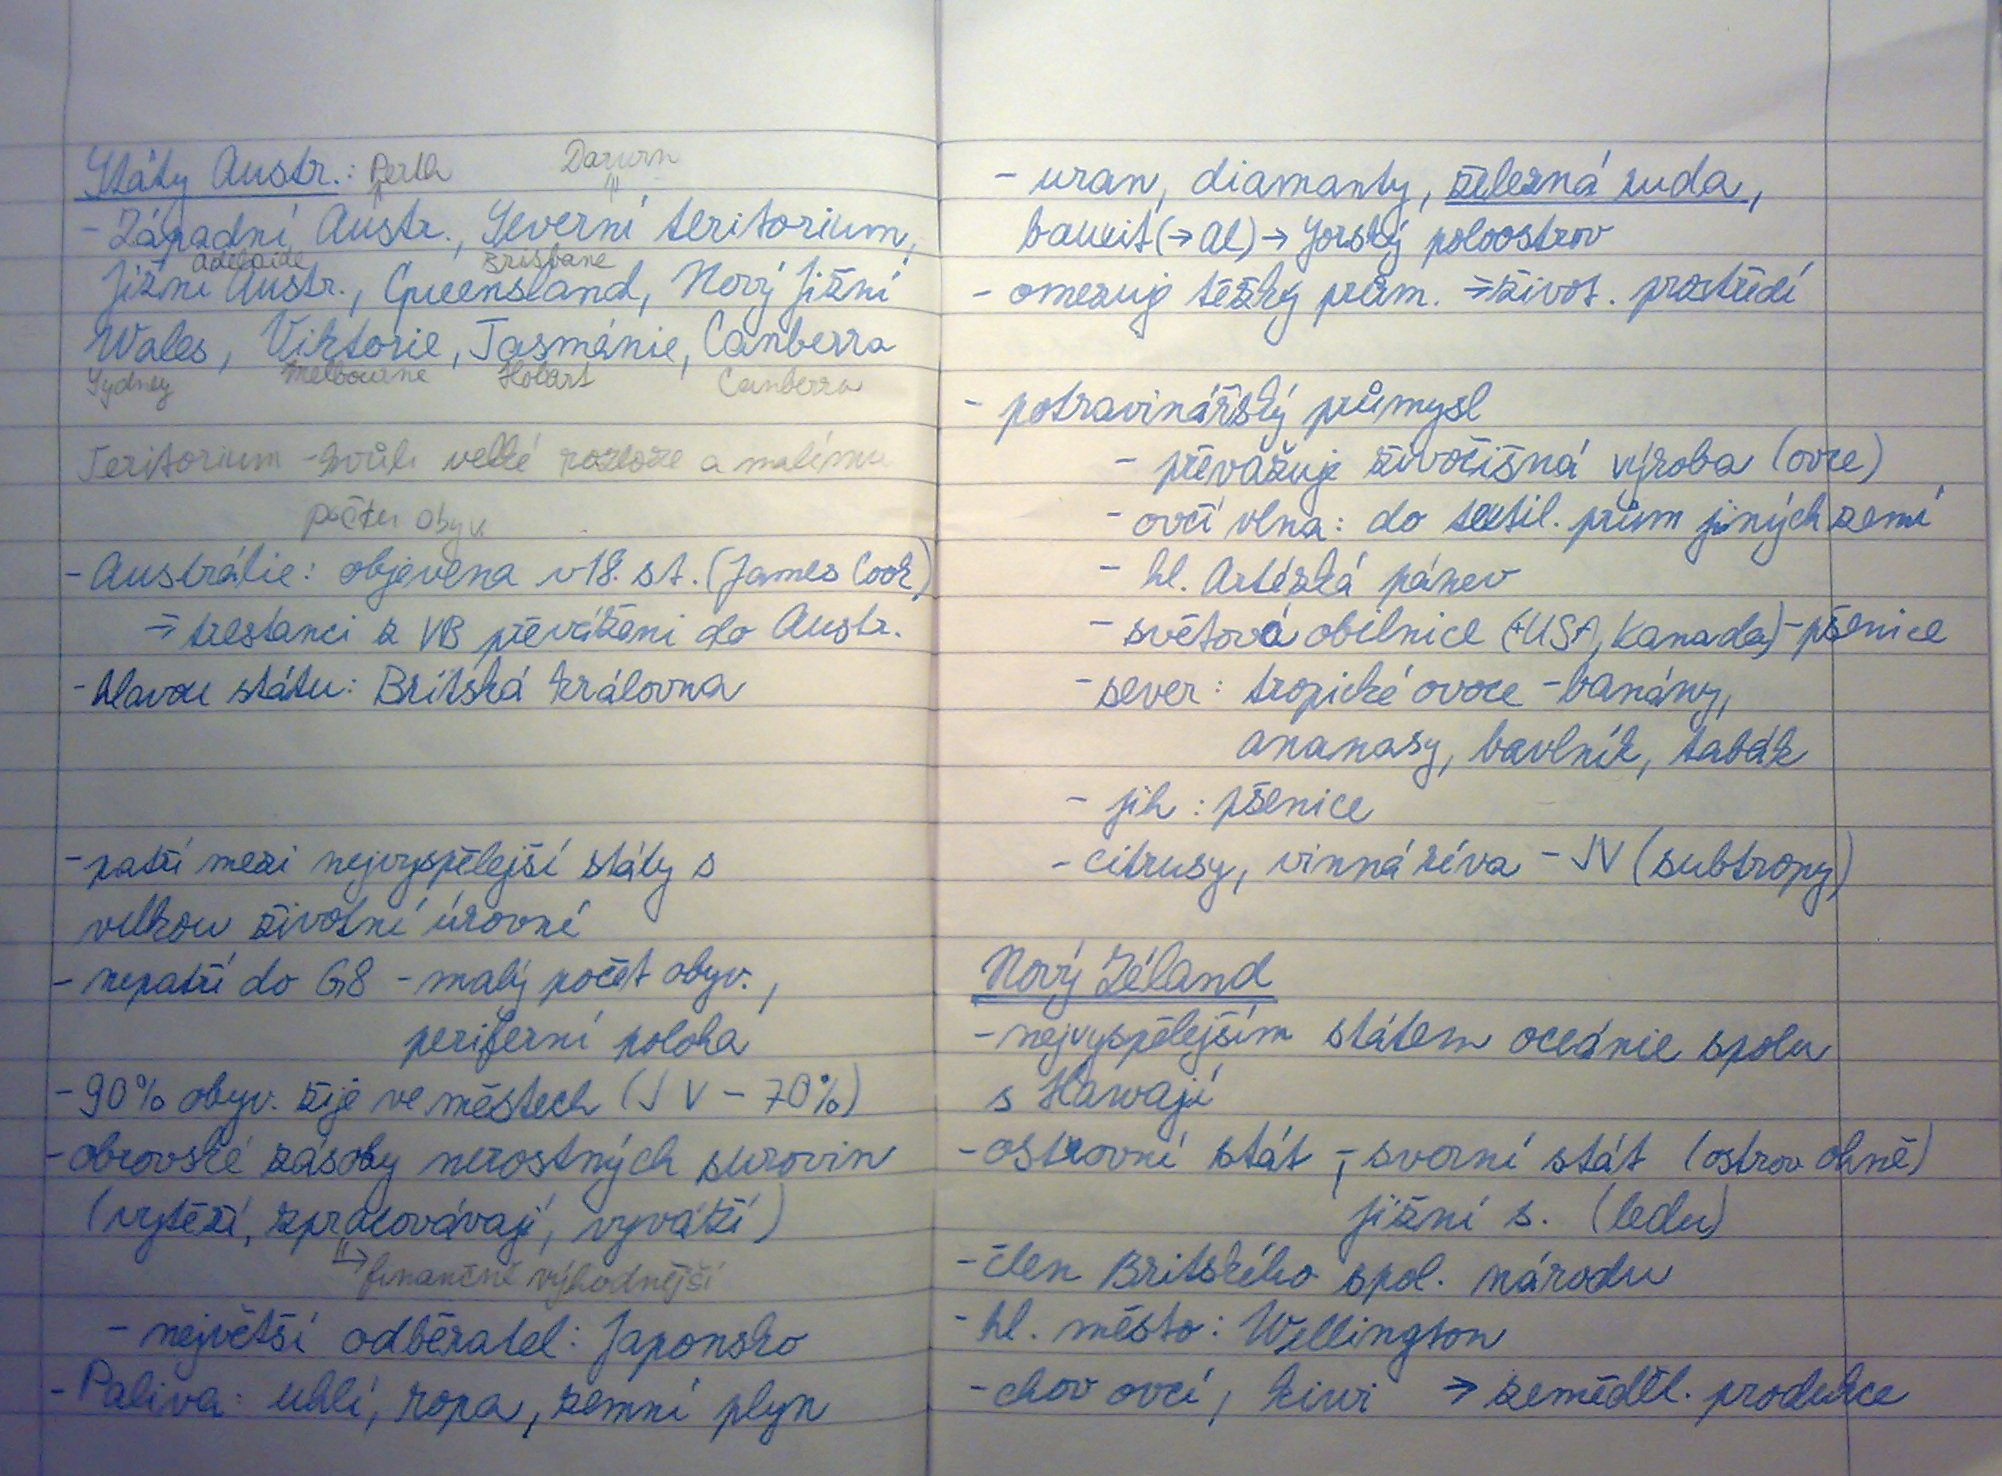 Státy Austr.: Perth Darwin
- Západní Austr., Severní teritorium,
Adelaide Brisbane
Jižní Austr., Queensland, Nový Jižní
Wales, Viktorie, Tasmánie, Canberra
Sydney Melbourne Hobart Canberra
Teritorium - kvůli velké rozloze a malému
počtu obyv.
- Austrálie: objevena v 18. st. (James Cook)
⇒ trestanci z VB převáženi do Austr.
- hlavou státu: Britská královna
- patří mezi nejvyspělejší státy s
velkou životní úrovní
- nepatří do G8 - malý počet obyv.,
periferní poloha
- 90% obyv. žije ve městech (JV - 70%)
- obrovské zásoby nerostných surovin
(vytěží, zpracovávají, vyváží)
↳ finančně výhodnější
- největší odběratel: Japonsko
- Paliva: uhlí, ropa, zemní plyn
- uran, diamanty, železná ruda,
bauxit (→ Al) → Yorský poloostrov
- omezuje těžký prům. ⇒ život. prostředí
- potravinářský průmysl
- převažuje živočišná výroba (ovce)
- ovčí vlna: do textil. prům jiných zemí
- hl. Artézká pánev
- světová obilnice (+USA, Kanada) - pšenice
- sever: tropické ovoce - banány,
ananasy, bavlník, tabák
- jih: pšenice
- citrusy, vinná réva - JV (subtropy)
Nový Zéland
- nejvyspělejším státem oceánie spolu
s Hawají
- ostrovní stát - svorní stát (ostrov ohně)
- jižní s. (ledu)
- člen Britského spol. národu
- hl. město: Wellington
- chov ovcí, kiwi → zeměděl. produkce